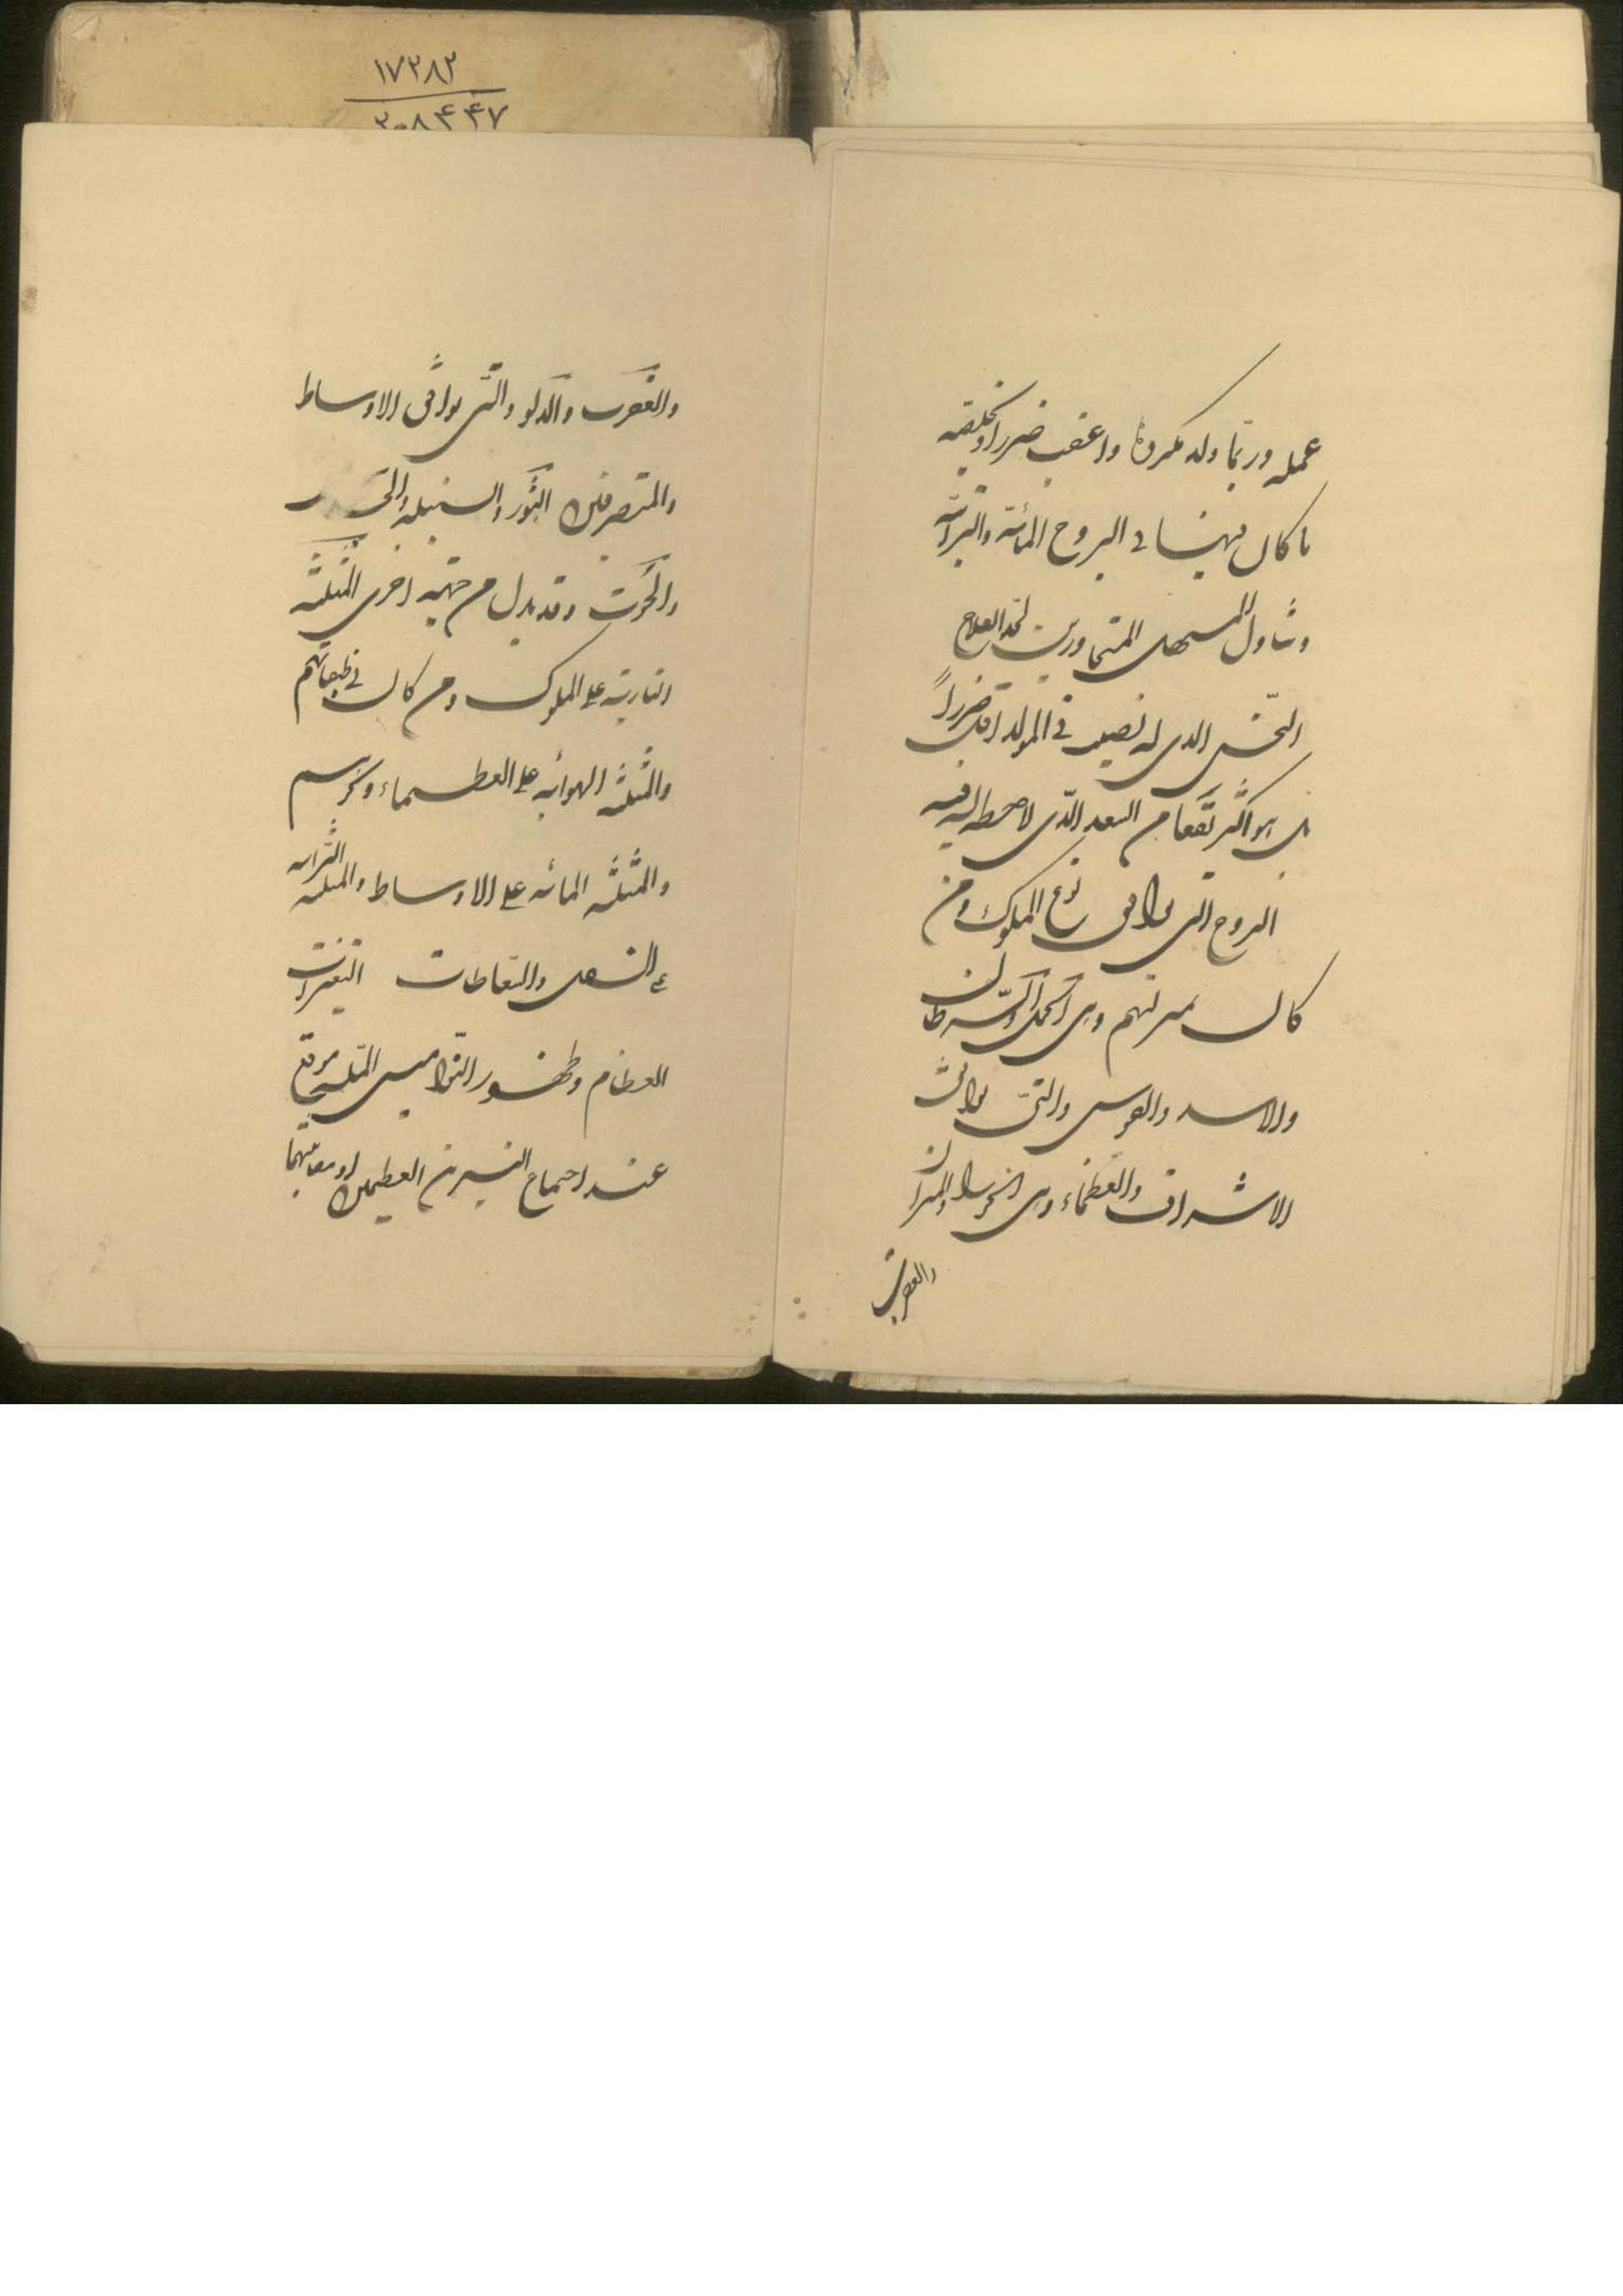 ۱۷۳۸۳
۳۰۸۴۴۷
عمله وربّما ولد مكروها واعقب ضررا وبخليقته
ما كان مهيئا فى البروج المائيّة والترابيّة
وتناول المسهل المتجاورين لحد العلاج
النّحس الذى له نصيب فى المولد اقل ضرراً
بل هو اكثر نفعا من السعد الّذى لا حظ له فيه
البروج التى توافق نوع الملوك ومن
كان بمنزلتهم وهى الحمل والسّرطان
والاسد والقوس والتى توافق
الاشراف والعظماء وهى الجوزاء والميزان
والعقرب
والعقرب والدلو والتى توافق الاوساط
والمتصرفين الثور والسنبلة والجدى
والحوت وقد يدل من جهة اخرى المثلثة
الناريّة على الملوك ومن كان فى طبقاتهم
والمثلثة الهوائيه على العظماء ونحوهم
والمثلثة المائيه على الاوساط والمثلثة الترابيه
على السفل والسّقاطات التغيرات
العظام وظهور النّواميس الجليله موقع
عند اجتماع النيرين العظيمين او مقابلتهما